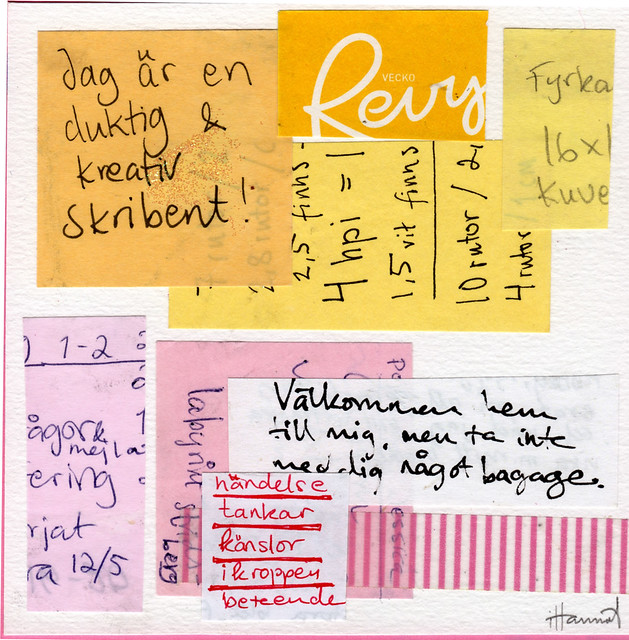 Jag är en
duktig &
kreativ
skribent!
VECKO
Revy
Fyrka
16x1
Kuve
2,5 finns
4 hpi = 1
1,5 vit finns
10 rutor / 2
4 rutor / 1 cm
1-2
ågor &
mejla
ering
rjat
ra 12/5
labyrint
berg
Välkommen hem
till mig, men ta inte
med dig något bagage.
händelse
tankar
känslor
i kroppen
beteende